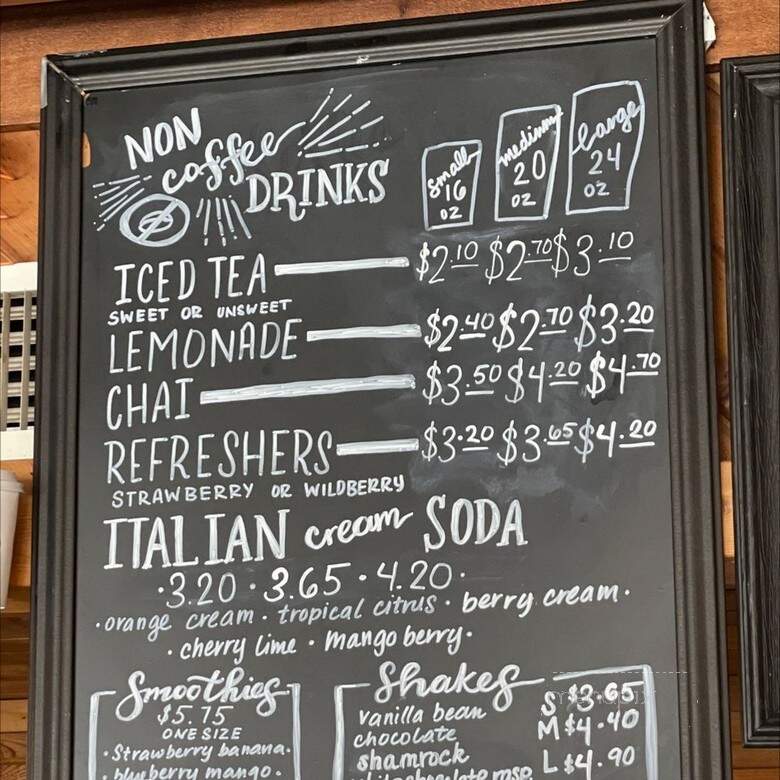 NON
coffee
DRINKS
small 16 oz
medium 20 oz
large 24 oz
ICED TEA $2.10 $2.70 $3.10
SWEET OR UNSWEET
LEMONADE $2.40 $2.70 $3.20
CHAI $3.50 $4.20 $4.70
REFRESHERS $3.20 $3.65 $4.20
STRAWBERRY OR WILDBERRY
ITALIAN cream SODA
·3.20·3.65·4.20·
·orange cream·tropical citrus·berry cream·
·cherry lime·mango berry·
Smoothies
$5.75
ONE SIZE
·Strawberry banana·
·blueberry mango·
Shakes
vanilla bean
chocolate
shamrock
S $3.65
M $4.40
L $4.90